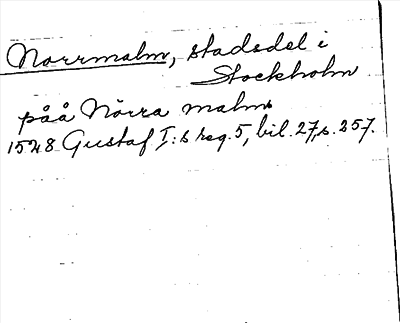 Norrmalm, stadsdel i
Stockholm
påå Nörra malm
1528 Gustaf I:s reg. 5, bil. 27, s. 257.